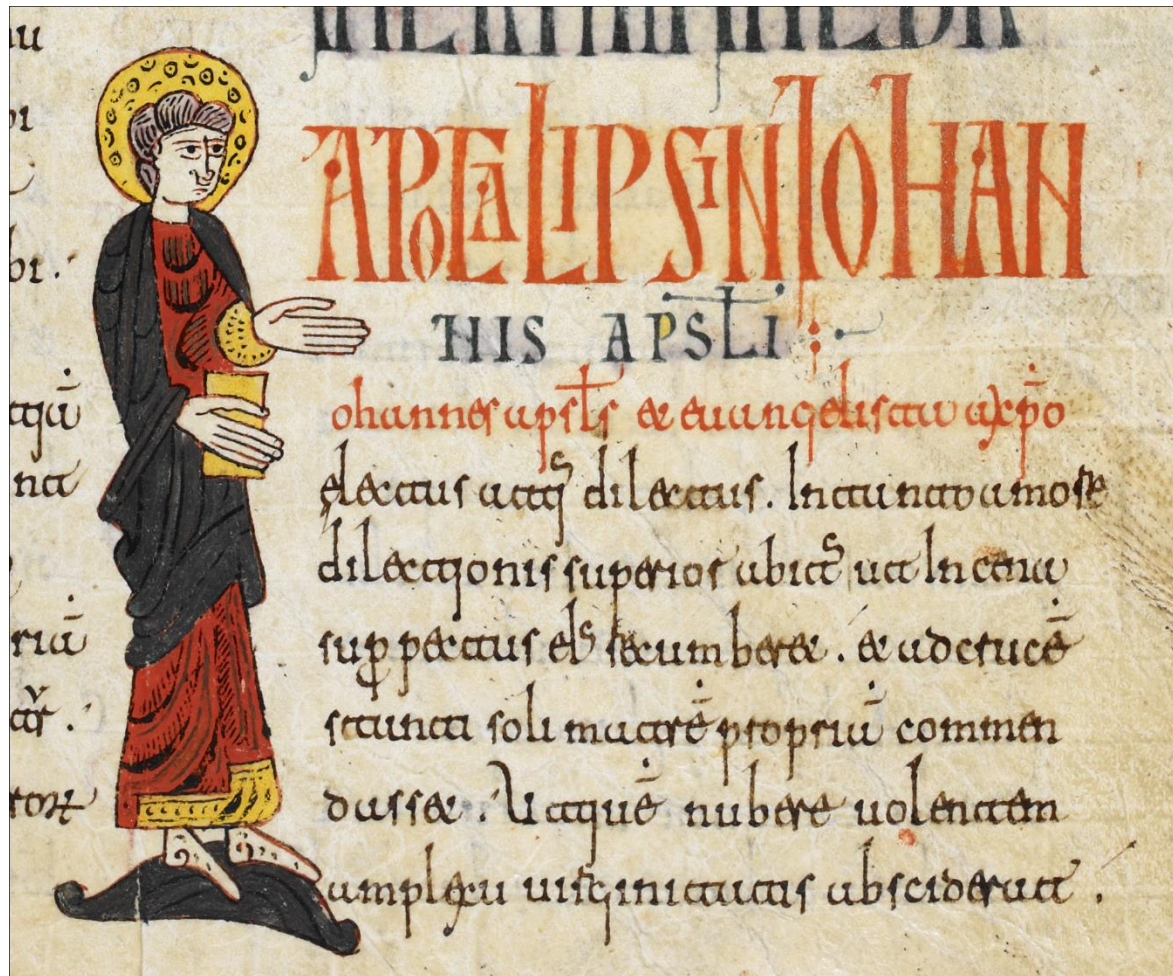 APOCALIPSIN IOHAN
NIS APSTLI
ohannes apstls et euangelista a xpo
electus atqs dilectus. In tanto amore
dilectionis superior abits ut In cena
supr pectus eis recumberet. et ad crucē
soli matrē propriā commen
dasset. Utquē nubere uolentem
amplexu uirginitatis absciderat.